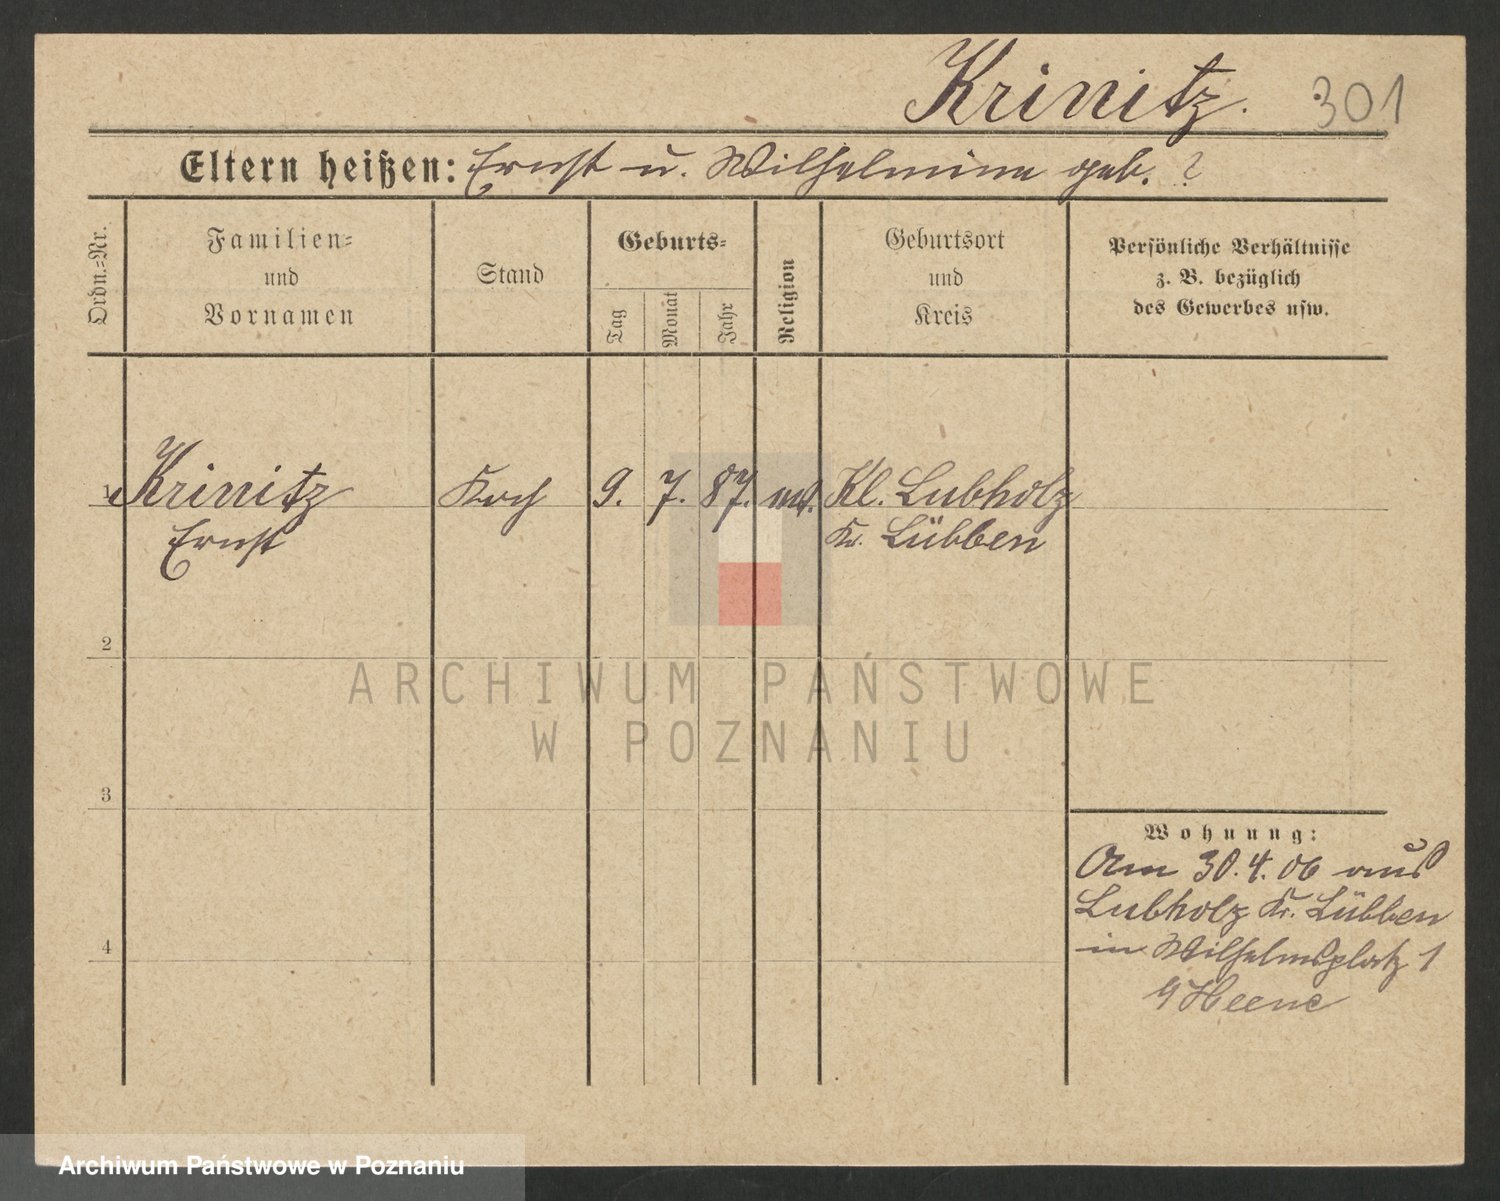 Krinitz. 301
Eltern heißen: Ernst u. Wilhelmine geb. ?
Ordn.-Nr.
Familien-
und
Vornamen
Stand
Geburts-
Tag
Monat
Jahr
Religion
Geburtsort
und
Kreis
Persönliche Verhältnisse
z. B. bezüglich
des Gewerbes usw.
1 Krinitz Koch 9. 7. 87. Kl. Lubholz
Ernst Kr. Lübben
2
3
4
Wohnung:
Am 30.4.06 aus
Lubholz Kr. Lübben
in Wilhelmsplatz 1
Heene
ARCHIWUM PAŃSTWOWE
W POZNANIU
Archiwum Państwowe w Poznaniu